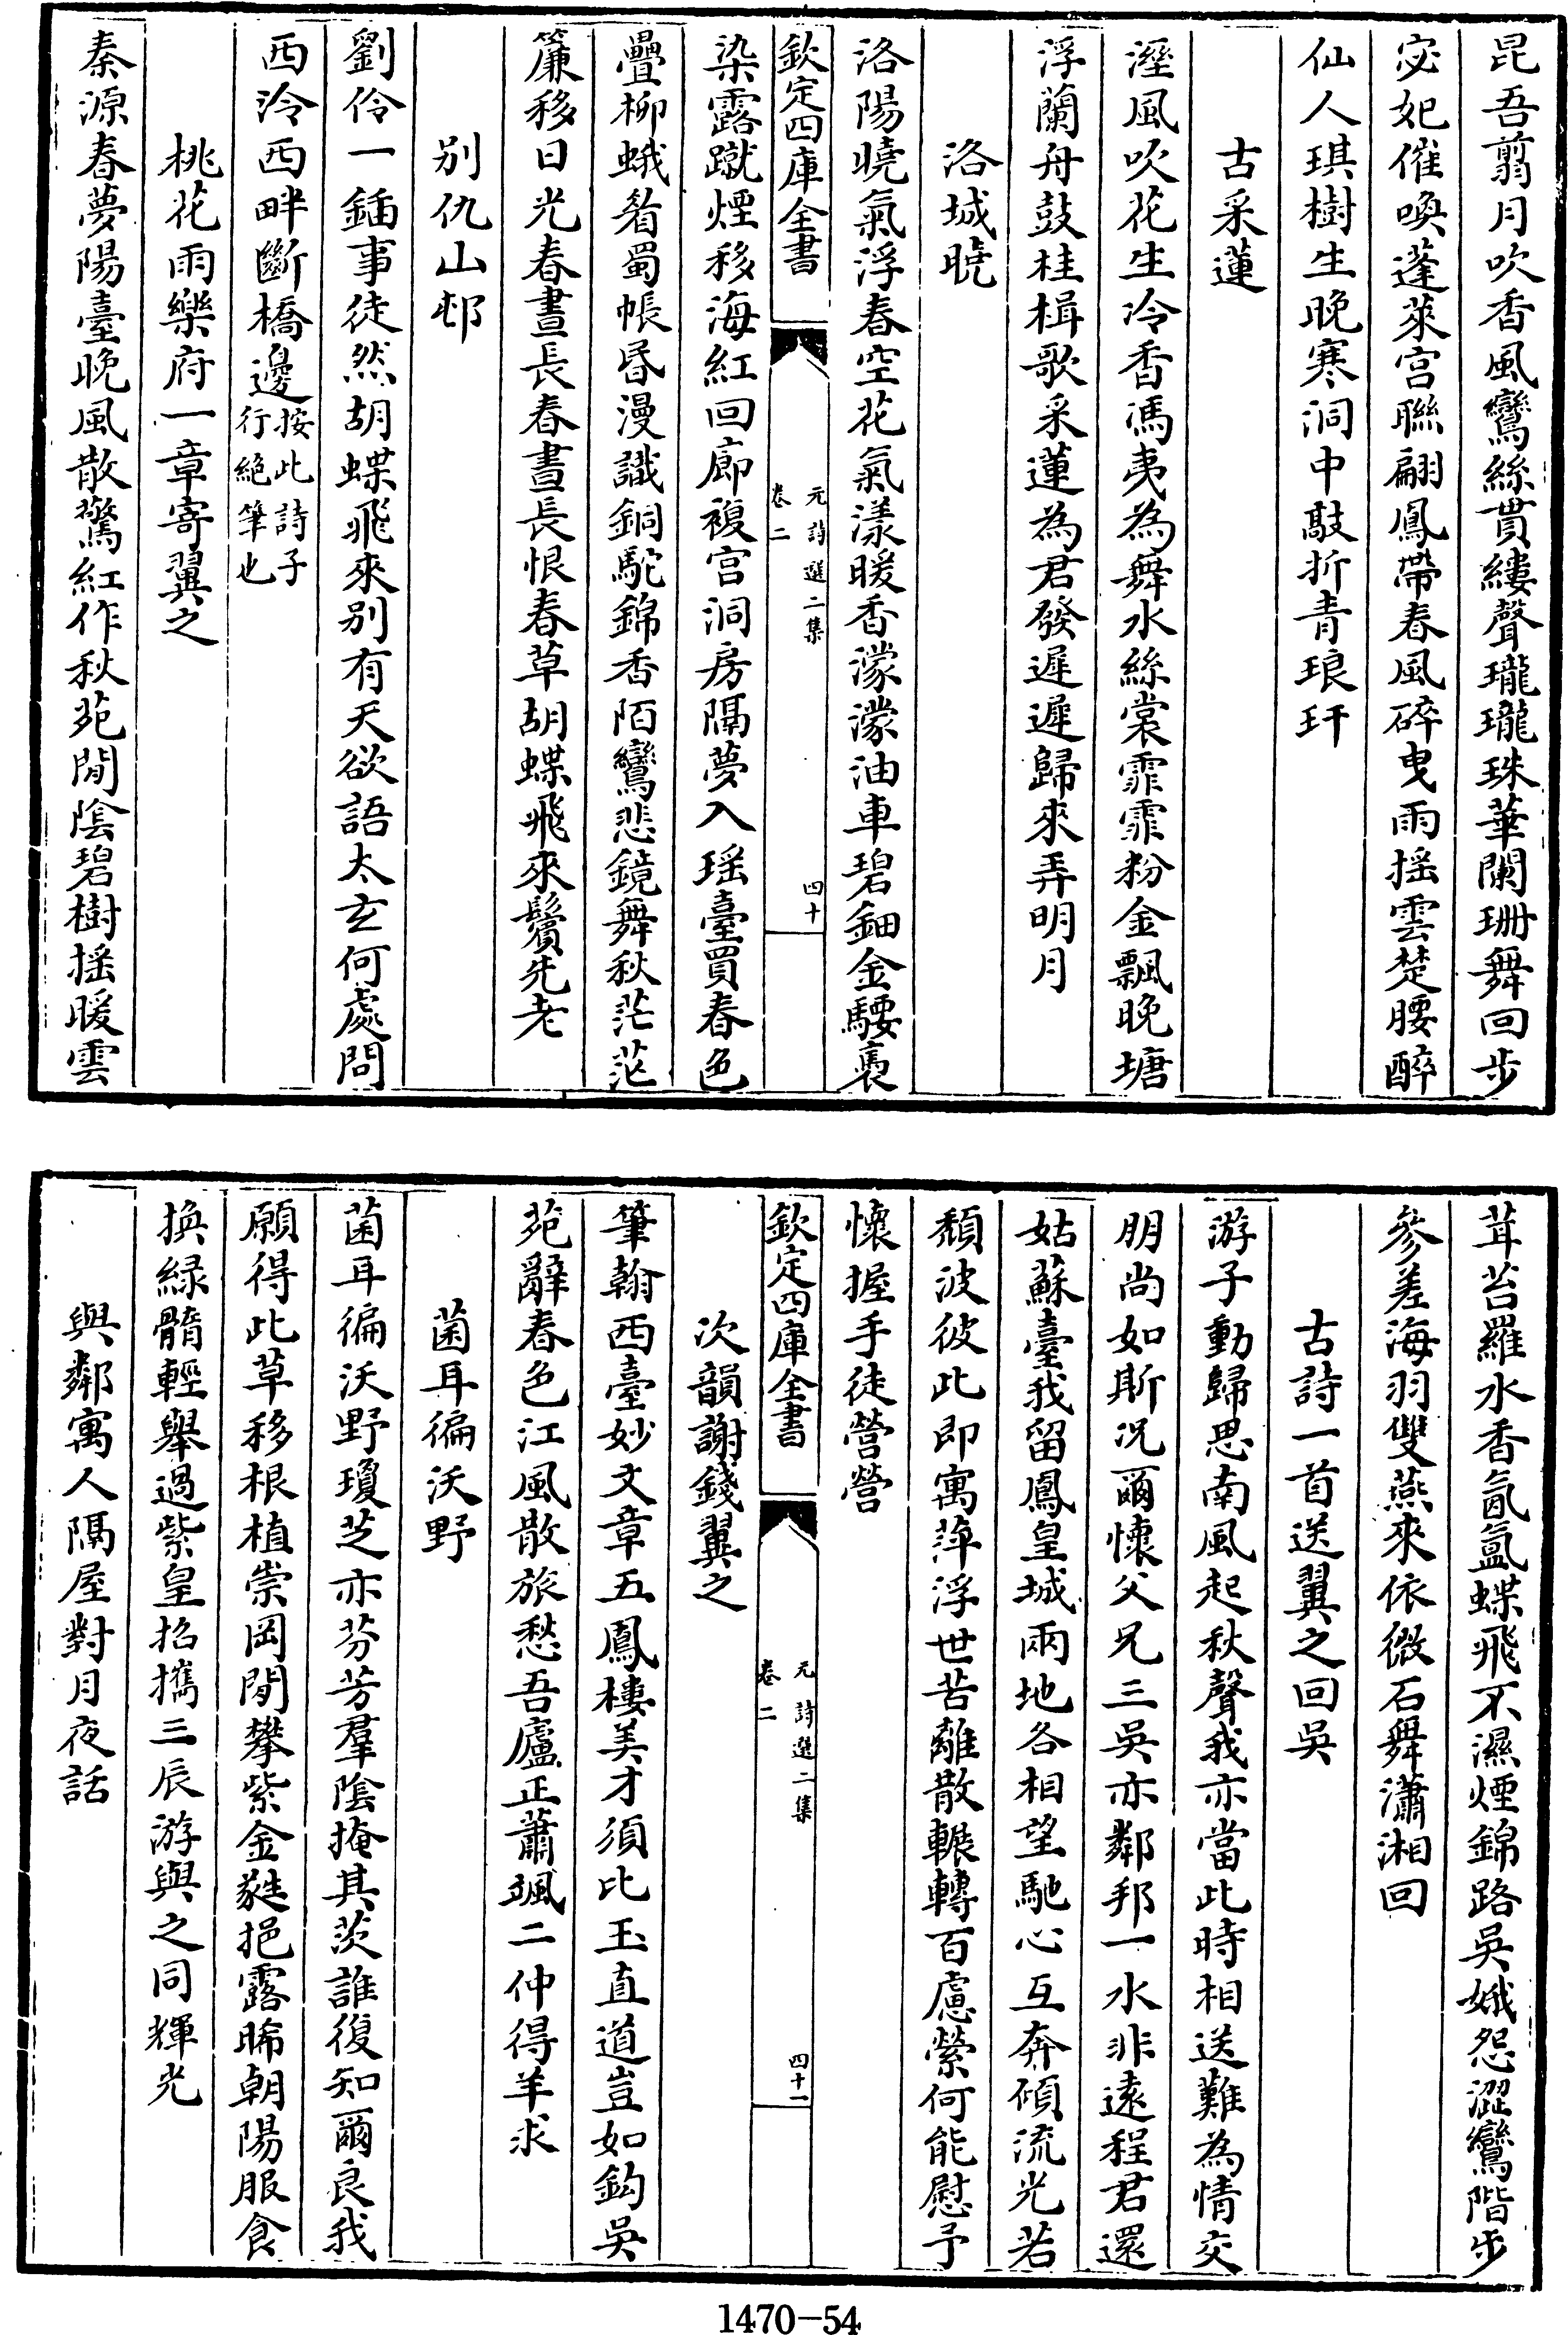 昆吾翦月吹香風鸞絲貫縷聲瓏瓏珠華闌珊舞回步
宓妃催喚蓬萊宫聯翩鳳帶春風碎曳雨揺雲楚腰醉
仙人琪樹生晚寒洞中敲折青琅玕
古采蓮
溼風吹花生冷香馮夷為舞水絲裳霏霏粉金飄晚塘
浮蘭舟鼓桂楫歌采蓮為君發遲遲歸來弄明月
洛城曉
洛陽曉氣浮春空花氣漾暖香濛濛油車碧鈿金騕褭
欽定四庫全書
元詩選二集
卷二
四十
染露蹴煙移海紅回廊複宫洞房隔夢入瑶臺買春色
疊柳蛾眉蜀帳昬漫識銅駝錦香陌鸞悲鏡舞秋茫茫
簾移日光春晝長春晝長恨春草胡蝶飛來鬢先老
别仇山邨
劉伶一鍤事徒然胡蝶飛來别有天欲語太玄何處問
西泠西畔斷橋邊按此詩子
行絶筆也
桃花雨樂府一章寄翼之
秦源春夢陽臺晚風散驚紅作秋苑閒陰碧樹揺暖雲
茸苔羅水香氤氲蝶飛不濕煙錦路吳娥怨澀鸞階步
參差海羽雙燕來依微石舞瀟湘回
古詩一首送翼之回吳
游子動歸思南風起秋聲我亦當此時相送難為情交
朋尚如斯况爾懷父兄三吳亦鄰邦一水非遠程君還
姑蘇臺我留鳳皇城兩地各相望馳心互奔傾流光若
頽波彼此即寓萍浮世苦離散輾轉百慮縈何能慰予
懷握手徒營營
欽定四庫全書
元詩選二集
卷二
四十一
次韻謝錢翼之
筆翰西臺妙文章五鳳樓美才須比玉直道豈如鈎吳
苑辭春色江風散旅愁吾廬正蕭颯二仲得羊求
菌耳徧沃野
菌耳徧沃野瓊芝亦芬芳羣陰掩其茨誰復知爾良我
願得此草移根植崇岡閒攀紫金蕤挹露晞朝陽服食
换緑髓輕舉過紫皇招攜三辰游與之同輝光
與鄰寓人隔屋對月夜話
1470-54